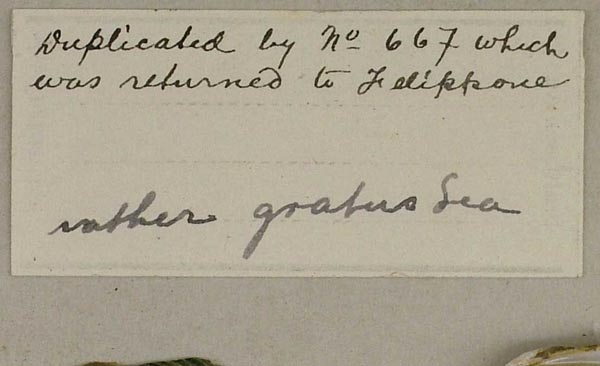 Duplicated by No 667 which
was returned to Felippone
rather gratus Lea